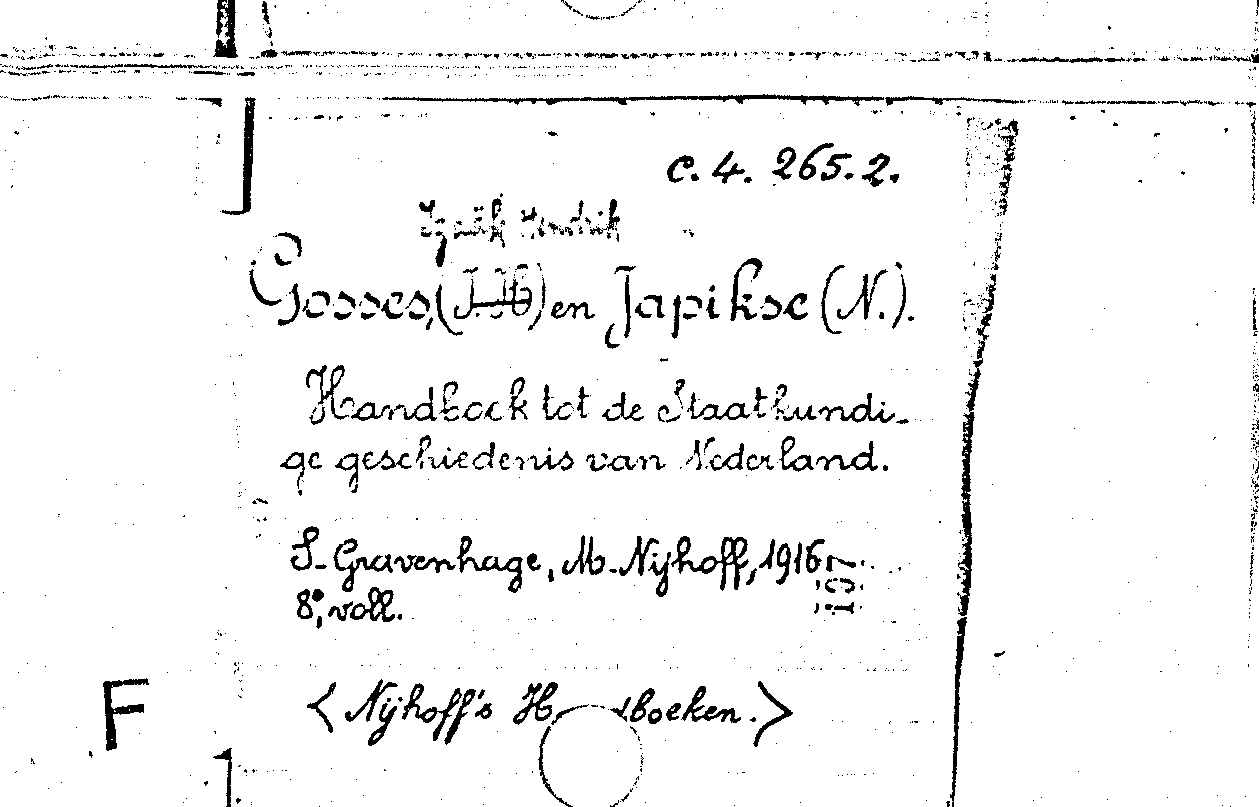 C. 4. 265. 2.
Izaäk Hendrik
Gosses, (I. H.) en Japikse (N.).
Handboek tot de Staatkundi-
ge geschiedenis van Nederland.
S-Gravenhage, M. Nijhoff, 1916
8°, voll.
F
< Nijhoff's H dboeken. >